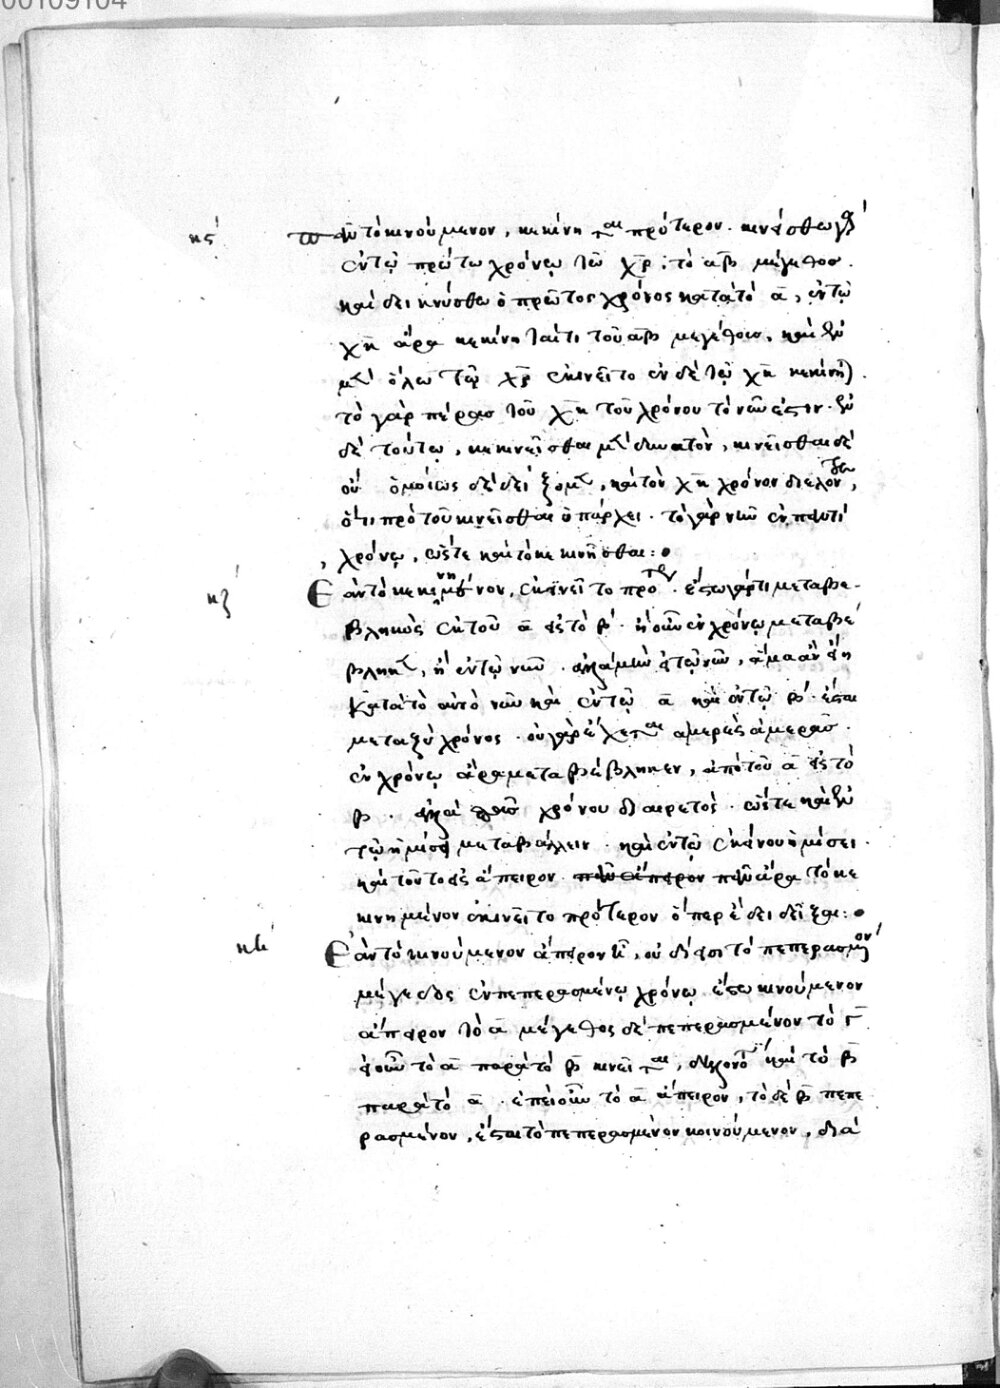 00109104
κϛ´ πᾶν τὸ κινούμενον, κεκίνηται πρότερον. κινείσθω γὰρ
ἐν τῷ πρώτῳ χρόνῳ τῶ χρ, τὸ αβ μέγεθος.
καὶ δει κνύσθω ὁ πρῶτος χρόνος κατὰ τὸ α, ἐν τῷ
χκ ἄρα κεκίνηταί τι τοῦ αβ μεγέθους, καὶ ἐν
μὲν ὅλω τῷ χρ ἐκινεῖτο ἐν δὲ τῷ χκ κεκίνηται.
τὸ γὰρ πέρας τοῦ χκ τοῦ χρόνου τὸ νῦν ἐστιν. ἐν
δὲ τούτω, κεκινεῖσθαι μὲν δυνατὸν, κινεῖσθαι δὲ
οὔ ὁμοίως δὲ δείξομεν, καὶ τὸν χκ χρόνον διελόντες,
ὅτι πρὸ τοῦ κινεῖσθαι ὑπάρχει. τὸ γὰρ νῦν ἐν παντὶ
χρόνῳ, ὥστε καὶ τὸ κεκινῆσθαι:
κζ´ Ἐὰν τὸ κεκινημένον, ἐκινεῖτο πρότερον. ἔστω γάρ τι μεταβε
βληκὼς ἐκ τοῦ α εἰς τὸ β. ἢ οὖν ἐν χρόνῳ μεταβέ
βληκεν, ἢ ἐν τῷ νῦν. ἀλλ' εἰ μὲν ἐν τῷ νῦν, ἅμα ἂν εἴη
κατὰ τὸ αὐτὸ νῦν καὶ ἐν τῷ α καὶ ἐν τῷ β. ἔσται
μεταξὺ χρόνος. οὐ γὰρ ἔχεται ἀμερὲς ἀμεροῦς.
ἐν χρόνῳ ἄρα μεταβέβληκεν, ἀπὸ τοῦ α εἰς τὸ
β. ἀλλὰ πᾶς χρόνου διαιρετός. ὥστε καὶ ἐν
τῷ ἡμίσει μεταβάλλειν. καὶ ἐν τῷ ἐκείνου ἡμίσει.
καὶ τοῦτο εἰς ἄπειρον. πᾶν ἄπειρον πᾶν ἄρα τὸ κε
κινημένον ἐκινεῖτο πρότερον ὅπερ ἔδει δεῖξαι:
κη´ Ἐὰν τὸ κινούμενον ἄπειρον ᾖ, οὐ δίεισι τὸ πεπερασμένον
μέγεθος ἐν πεπερασμένῳ χρόνῳ ἔστω κινούμενον
ἄπειρον τὸ α μέγεθος δὲ πεπερασμένον τὸ Γ
εἰ οὖν τὸ α παρὰ τὸ β κινεῖται, δηλονότι καὶ τὸ β
παρὰ τὸ α. ἐπεὶ οὖν τὸ α ἄπειρον, τὸ δὲ β πεπε
ρασμένον, ἔσται τὸ πεπερασμένον κινούμενον, διὰ